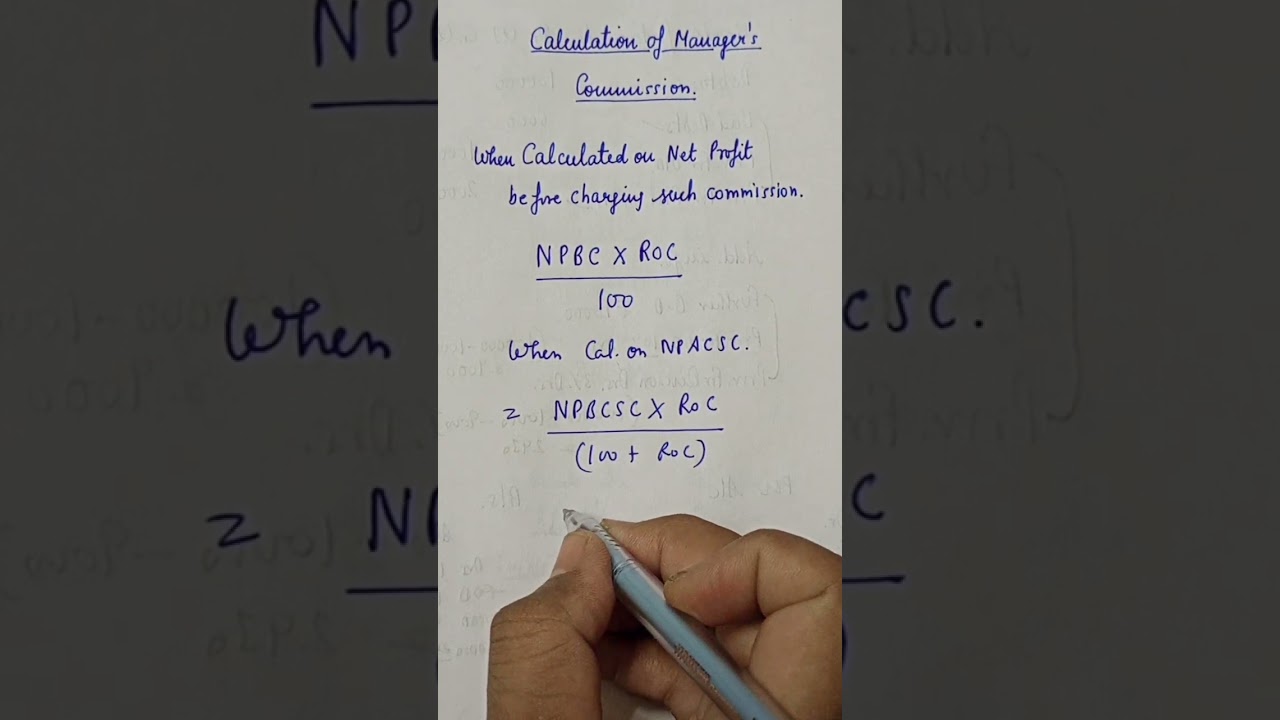 Calculation of Manager's
Commission.
When Calculated on Net Profit
before charging such commission.
NPBC X ROC
100
When Cal. on NPACSC.
= NPBCSC X ROC
(100 + ROC)